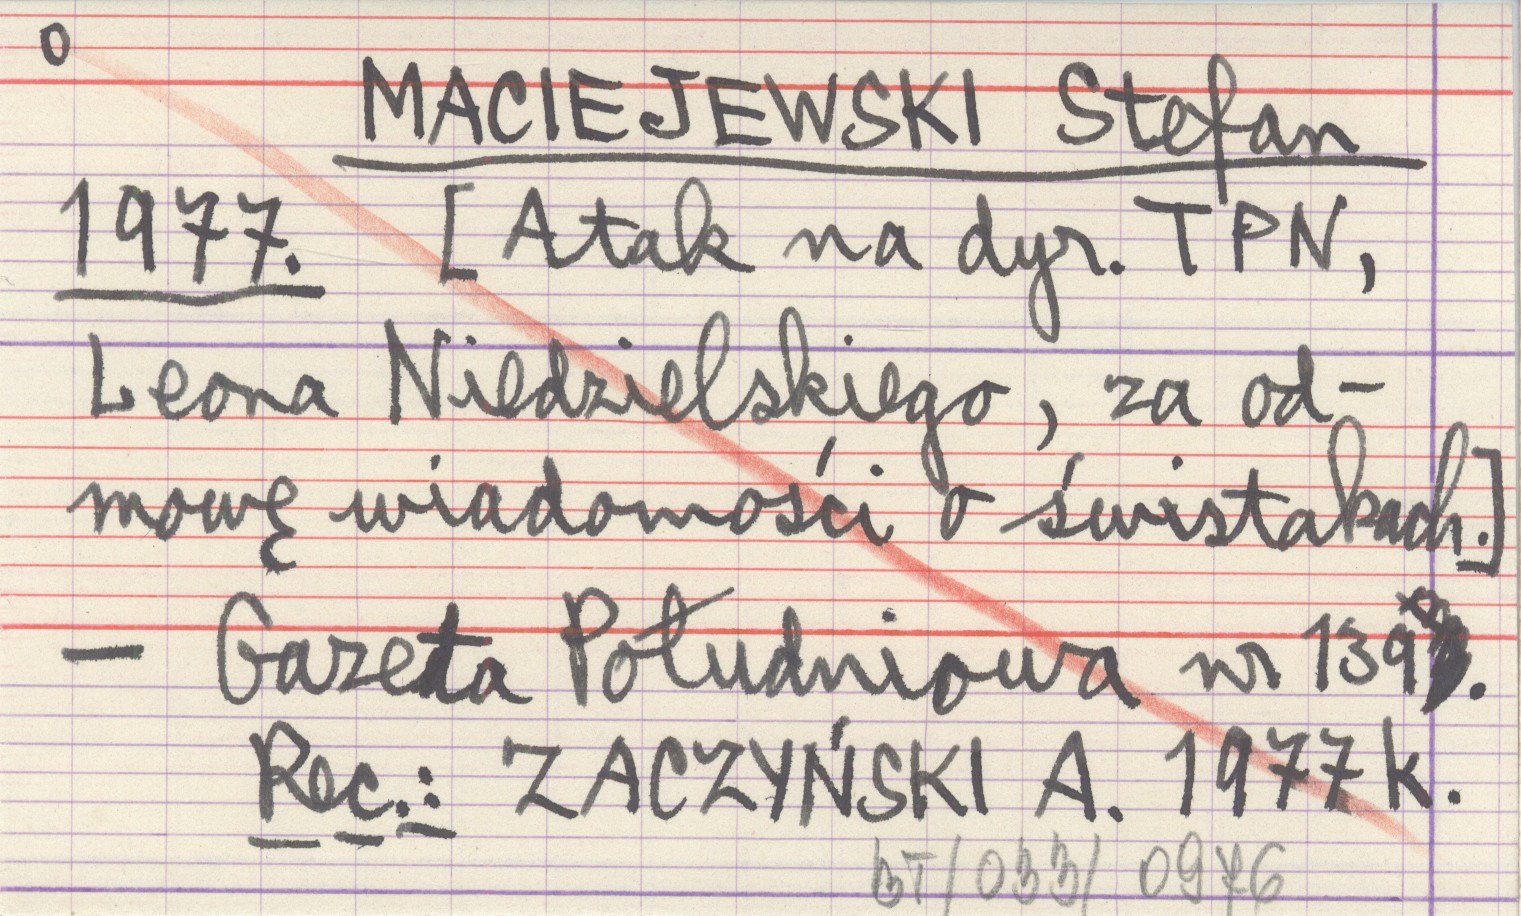 o
MACIEJEWSKI Stefan
1977. [Atak na dyr. TPN,
Leona Niedzielskiego, za od-
mowę wiadomości o świstakach.]
— Gazeta Południowa nr 139.
Rec.: ZACZYŃSKI A. 1977k.
BT/033/0976